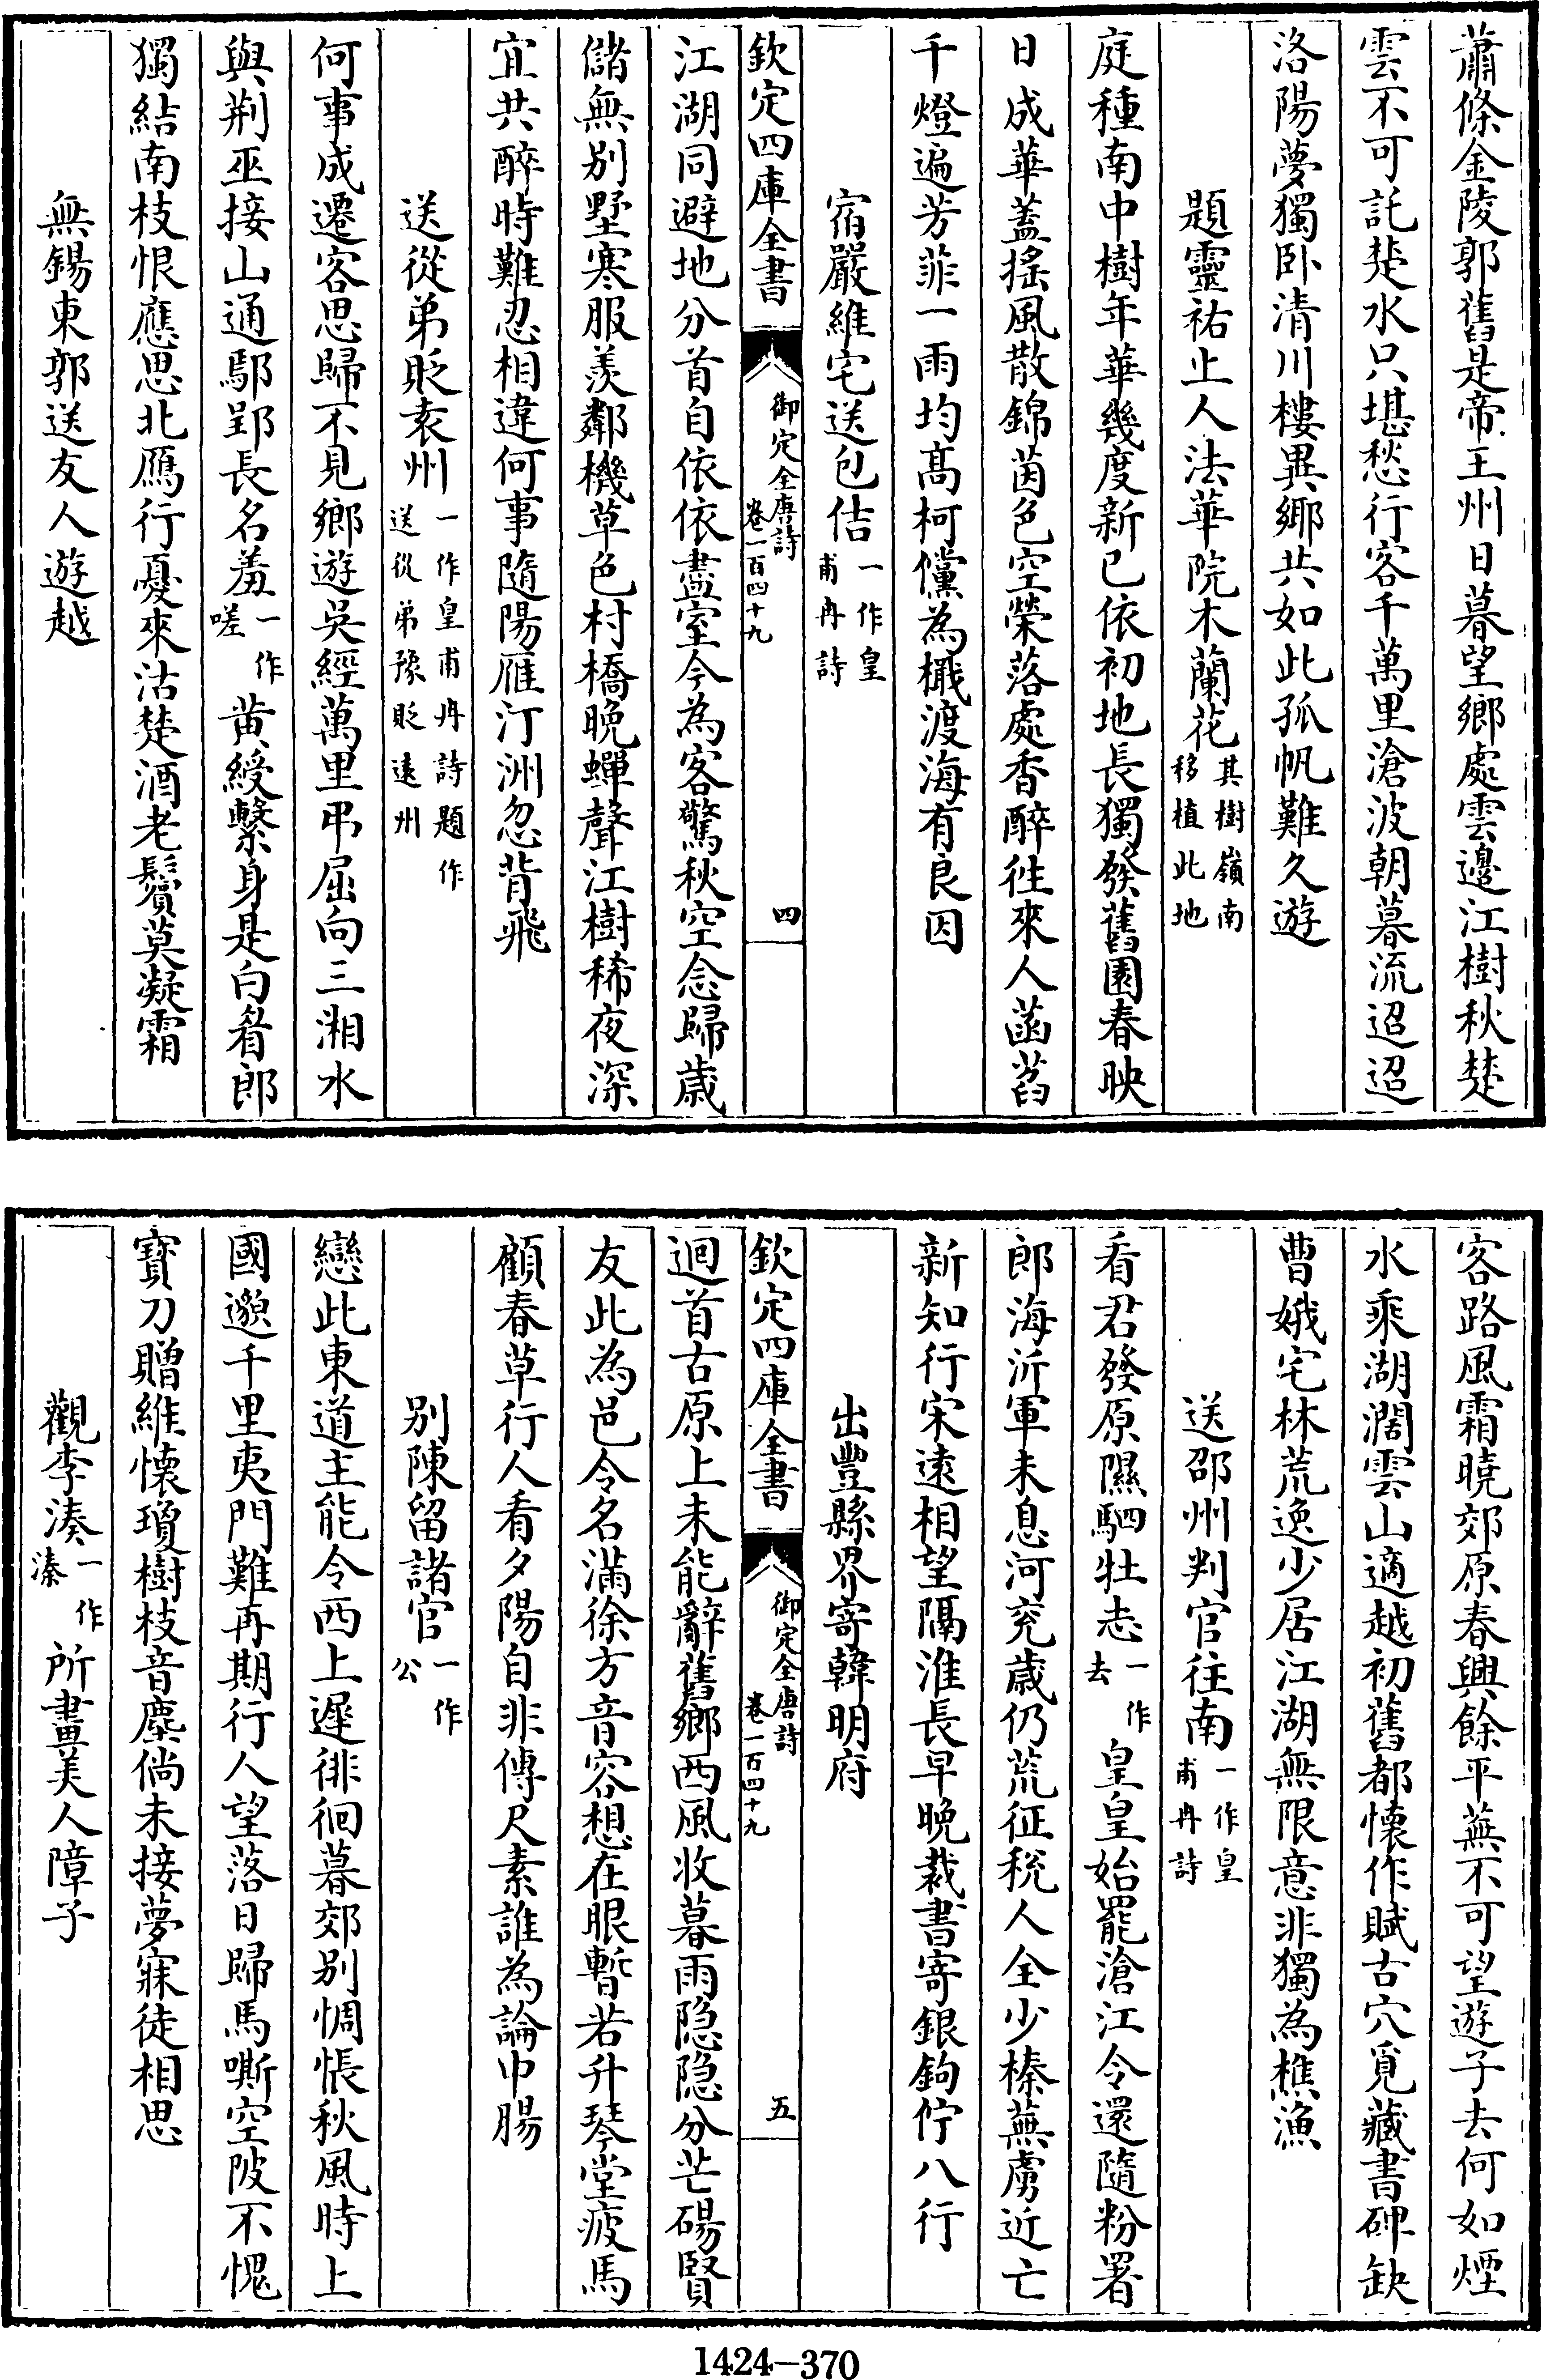 蕭條金陵郭舊是帝王州日暮望鄉處雲邊江樹秋楚
雲不可託楚水只堪愁行客千萬里滄波朝暮流迢迢
洛陽夢獨卧清川樓異鄉共如此孤帆難久遊
題靈祐上人法華院木蘭花其樹嶺南移植此地
庭種南中樹年華幾度新已依初地長獨發舊園春映
日成華蓋搖風散錦茵色空榮落處香醉徃來人菡萏
千燈遍芳菲一雨均高柯儻為檝渡海有良因
宿嚴維宅送包佶一作皇甫冉詩
欽定四庫全書 御定全唐詩卷一百四十九 四
江湖同避地分首自依依盡室今為客驚秋空念歸歲
儲無别墅寒服羨鄰機草色村橋晚蟬聲江樹稀夜深
宜共醉時難忍相違何事隨陽雁汀洲忽背飛
送從弟貶袁州一作皇甫冉詩題作送從弟豫貶遠州
何事成遷客思歸不見鄉遊吳經萬里弔屈向三湘水
與荆巫接山通鄢郢長名羞一作嗟黄綬繫身是白眉郎
獨結南枝恨應思北鴈行憂來沽楚酒老鬢莫凝霜
無錫東郭送友人遊越
客路風霜曉郊原春興餘平蕪不可望遊子去何如煙
水乘湖濶雲山適越初舊都懷作賦古穴覓藏書碑缺
曹娥宅林荒逸少居江湖無限意非獨為樵漁
送邵州判官往南一作皇甫冉詩
看君發原隰駟牡志一作去皇皇始罷滄江令還隨粉署
郎海沂軍未息河兖歲仍荒征稅人全少榛蕪虜近亡
新知行宋遠相望隔淮長早晚裁書寄銀鉤佇八行
出豐縣界寄韓明府
欽定四庫全書 御定全唐詩卷一百四十九 五
迴首古原上未能辭舊鄉西風收暮雨隱隱分芒碭賢
友此為邑令名滿徐方音容想在眼暫若升琴堂疲馬
顧春草行人看夕陽自非傳尺素誰為論中腸
别陳留諸官一作公
戀此東道主能令西上遲徘徊暮郊别惆悵秋風時上
國邈千里夷門難再期行人望落日歸馬嘶空陂不愧
寳刀贈維懷瓊樹枝音塵倘未接夢寐徒相思
觀李湊一作溱所畫美人障子
1424-370